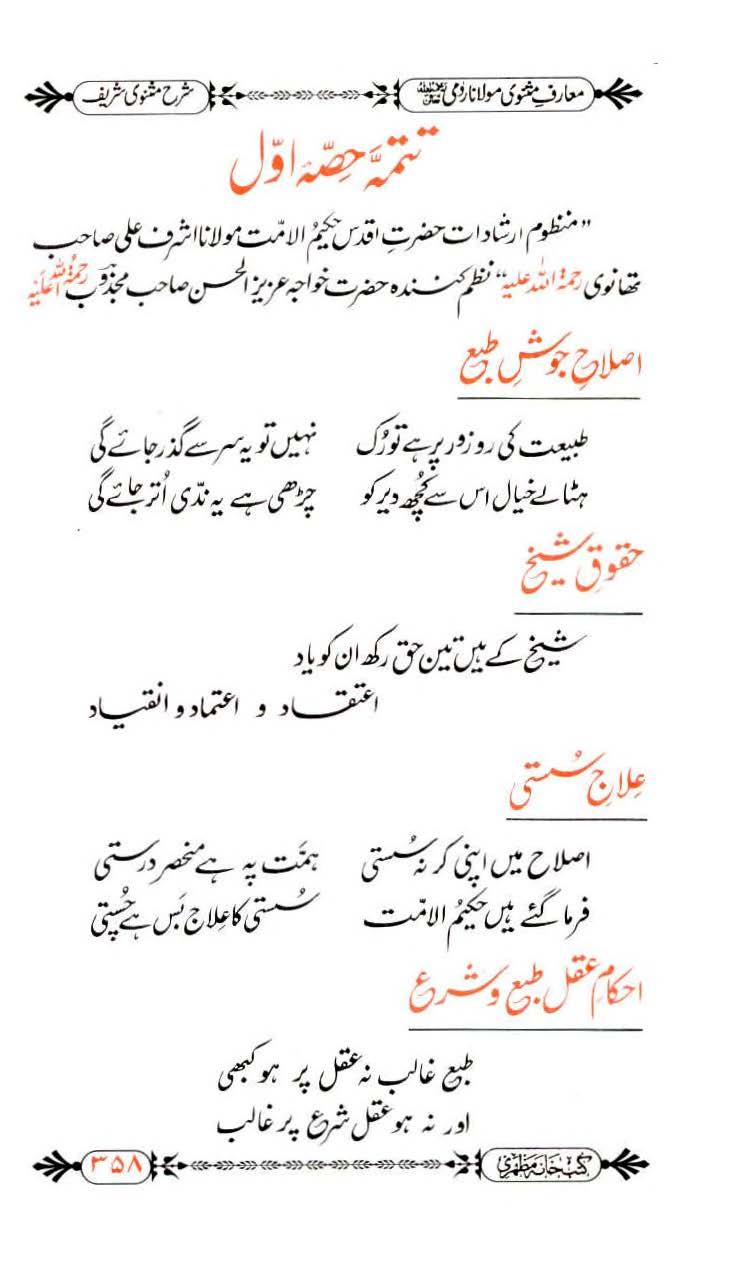 معارفِ مثنوی مولانا رومی شرح مثنوی شریف
تتمہَّ حصِّہ اوّل
”منظوم ارشادات حضرتِ اقدس حکیمُ الامّت مولانا اشرف علی صاحب
تھانوی رحمۃ اللہ علیہ“ نظم کنندہ حضرت خواجہ عزیز الحسن صاحب مجذوب رحمۃُ اللہ علَیْہ
اصلاحِ جوشِ طبع
طبیعت کی رو زور پر ہے تو رُک نہیں تو یہ سر سے گذر جائے گی
ہٹالے خیال اس سے کُچھ دیر کو چڑھی ہے یہ ندّی اُتر جائے گی
حقوقِ شیخ
شیخ کے ہیں تین حق رکھ ان کو یاد
اعتقاد و اعتماد و انقیاد
عِلاجِ سُستی
اصلاح میں اپنی کر نہ سُستی ہمّت پہ ہے منحصر درستی
فرما گئے ہیں حکیمُ الامّت سُستی کا عِلاج بَس ہے چُستی
احکامِ عقل طبع و شرع
طبع غالب نہ عقل پر ہو کبھی
اور نہ ہو عقل شرع پر غالب
کتب خانہ مظہری ۳۵۸